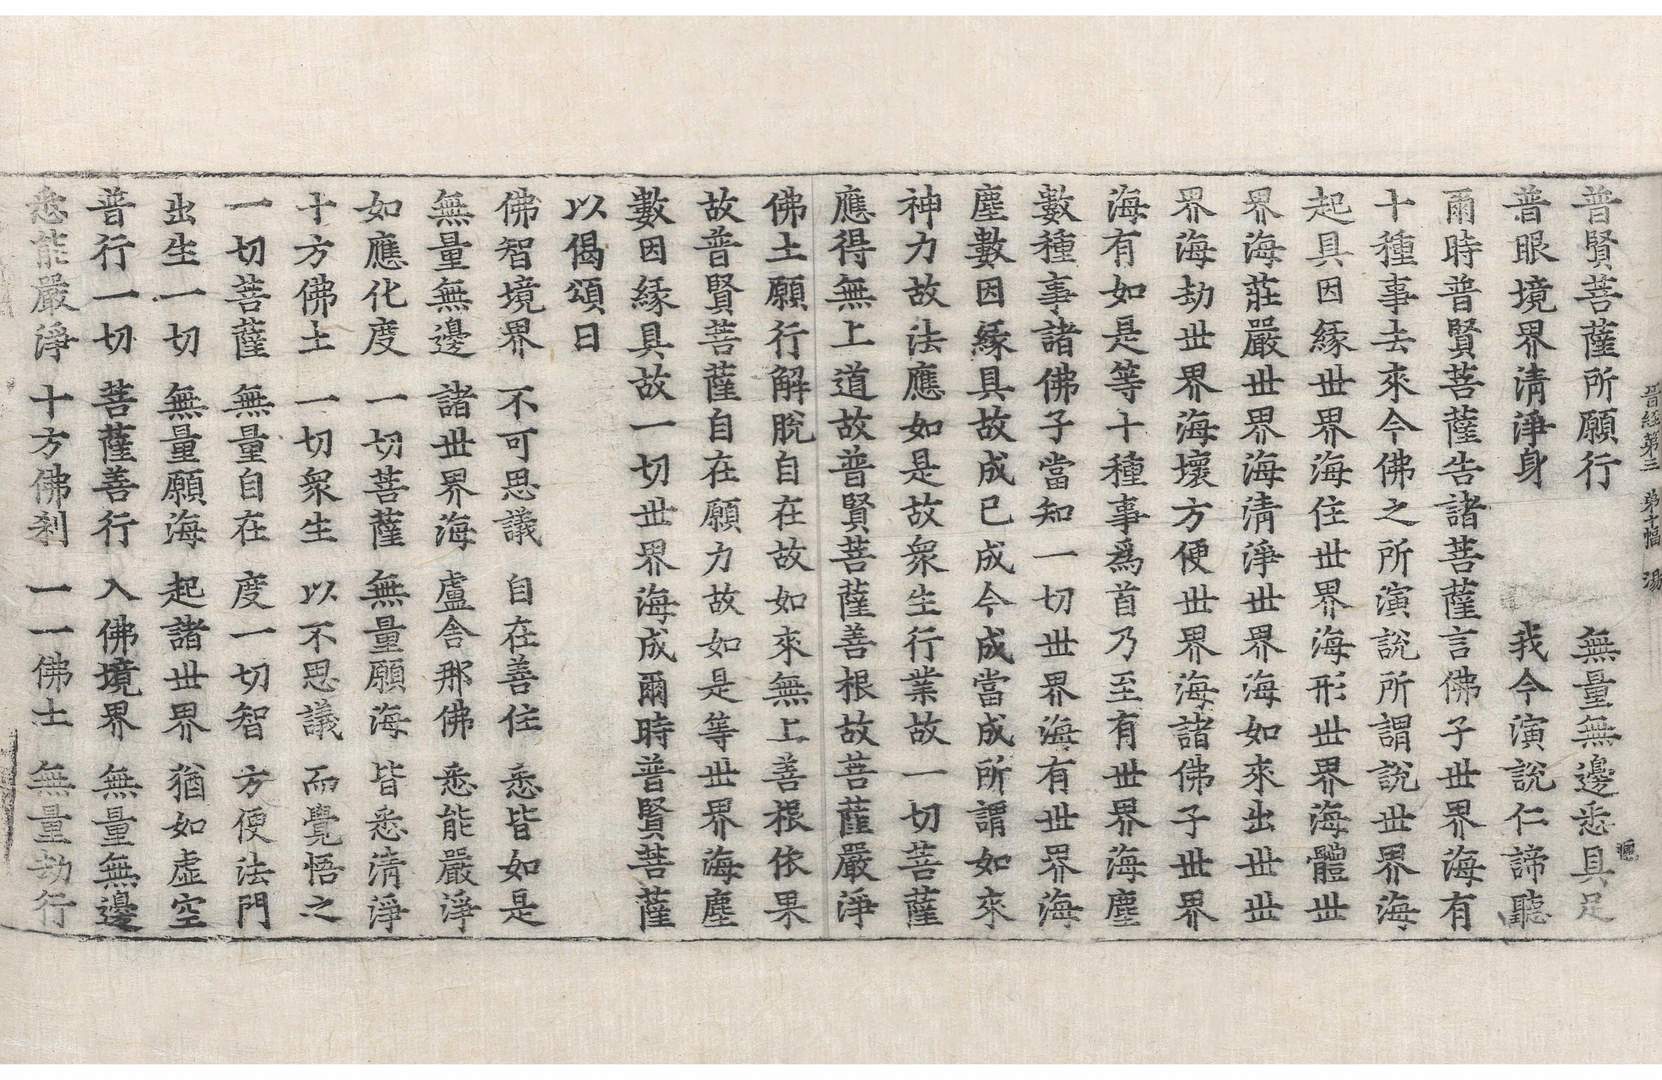 晉經第三　第十幅　
普賢菩薩所願行　無量無邊悉具足
普眼境界清淨身　我今演說仁諦聽
爾時普賢菩薩告諸菩薩言佛子世界海有
十種事去來今佛之所演說所謂說世界海
起具因緣世界海住世界海形世界海體世
界海莊嚴世界海清淨世界海如來出世世
界海劫世界海壞方便世界海諸佛子世界
海有如是等十種事爲首乃至有世界海塵
數種事諸佛子當知一切世界海有世界海
塵數因緣具故成已成今成當成所謂如來
神力故法應如是故衆生行業故一切菩薩
應得無上道故普賢菩薩善根故菩薩嚴淨
佛土願行解脫自在故如來無上善根依果
故普賢菩薩自在願力故如是等世界海塵
數因緣具故一切世界海成爾時普賢菩薩
以偈頌曰
佛智境界　不可思議　自在善住　悉皆如是
無量無邊　諸世界海　盧舍那佛　悉能嚴淨
如應化度　一切菩薩　無量願海　皆悉清淨
十方佛土　一切衆生　以不思議　而覺悟之
一切菩薩　無量自在　度一切智　方便法門
出生一切　無量願海　起諸世界　猶如虛空
普行一切　菩薩善行　入佛境界　無量無邊
悉能嚴淨　十方佛刹　一一佛土　無量劫行